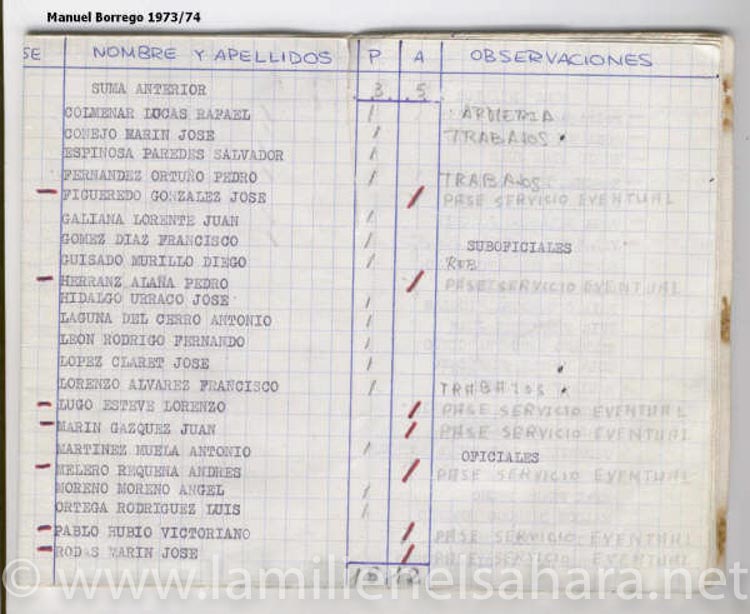 Manuel Borrego 1973/74
SE NOMBRE Y APELLIDOS P A OBSERVACIONES
SUMA ANTERIOR 3 5
COLMENAR LUCAS RAFAEL / ARMERIA
CONEJO MARIN JOSE / TRABAJOS
ESPINOSA PAREDES SALVADOR /
FERNANDEZ ORTUÑO PEDRO / TRABAJOS
— FIGUEREDO GONZALEZ JOSE / PASE SERVICIO EVENTUAL
GALIANA LORENTE JUAN /
GOMEZ DIAZ FRANCISCO / SUBOFICIALES
GUISADO MURILLO DIEGO /
— HERRANZ ALAÑA PEDRO / PASE SERVICIO EVENTUAL
HIDALGO URRACO JOSE /
LAGUNA DEL CERRO ANTONIO /
LEON RODRIGO FERNANDO /
LOPEZ CLARET JOSE /
LORENZO ALVAREZ FRANCISCO / TRABAJOS
— LUGO ESTEVE LORENZO / PASE SERVICIO EVENTUAL
— MARIN GAZQUEZ JUAN / PASE SERVICIO EVENTUAL
MARTINEZ MUELA ANTONIO / OFICIALES
— MELERO REQUENA ANDRES / PASE SERVICIO EVENTUAL
MORENO MORENO ANGEL /
ORTEGA RODRIGUEZ LUIS /
— PABLO RUBIO VICTORIANO / PASE SERVICIO EVENTUAL
— RODAS MARIN JOSE / PASE SERVICIO EVENTUAL
12
© www.lamilienelsahara.net